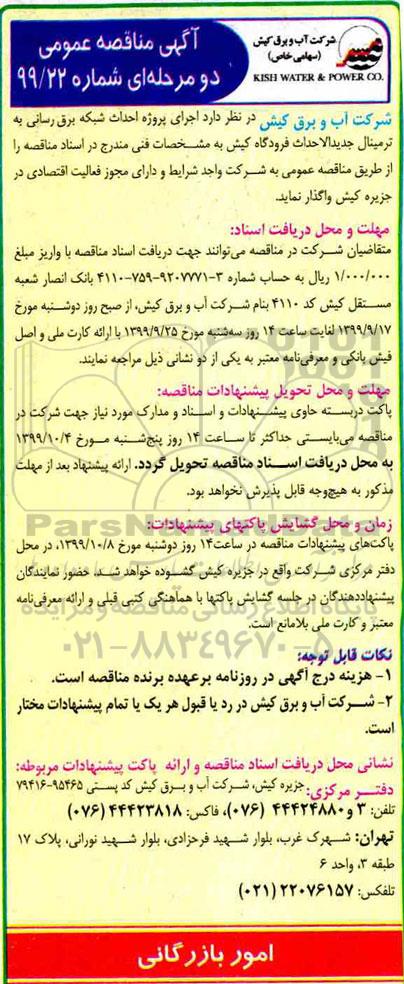 شرکت آب و برق کیش
(سهامی خاص)
KISH WATER & POWER CO.
آگهی مناقصه عمومی
دو مرحله‌ای شماره ۹۹/۲۲
شرکت آب و برق کیش در نظر دارد اجرای پروژه احداث شبکه برق رسانی به
ترمینال جدیدالاحداث فرودگاه کیش به مشخصات فنی مندرج در اسناد مناقصه را
از طریق مناقصه عمومی به شرکت واجد شرایط و دارای مجوز فعالیت اقتصادی در
جزیره کیش واگذار نماید.
مهلت و محل دریافت اسناد:
متقاضیان شرکت در مناقصه می‌توانند جهت دریافت اسناد مناقصه با واریز مبلغ
۱/۰۰۰/۰۰۰ ریال به حساب شماره ۳-۹۲۰۷۷۷۱-۷۵۹-۴۱۱۰ بانک انصار شعبه
مستقل کیش کد ۴۱۱۰ بنام شرکت آب و برق کیش، از صبح روز دوشنبه مورخ
۱۳۹۹/۹/۱۷ لغایت ساعت ۱۴ روز سه‌شنبه مورخ ۱۳۹۹/۹/۲۵ با ارائه کارت ملی و اصل
فیش بانکی و معرفی‌نامه معتبر به یکی از دو نشانی ذیل مراجعه نمایند.
مهلت و محل تحویل پیشنهادات مناقصه:
پاکت دربسته حاوی پیشنهادات و اسناد و مدارک مورد نیاز جهت شرکت در
مناقصه می‌بایستی حداکثر تا ساعت ۱۴ روز پنج‌شنبه مورخ ۱۳۹۹/۱۰/۴
به محل دریافت اسناد مناقصه تحویل گردد. ارائه پیشنهاد بعد از مهلت
مذکور به هیچ‌وجه قابل پذیرش نخواهد بود.
زمان و محل گشایش پاکتهای پیشنهادات:
پاکت‌های پیشنهادات مناقصه در ساعت۱۴ روز دوشنبه مورخ ۱۳۹۹/۱۰/۸، در محل
دفتر مرکزی شرکت واقع در جزیره کیش گشوده خواهد شد، حضور نمایندگان
پیشنهاددهندگان در جلسه گشایش پاکتها با هماهنگی کتبی قبلی و ارائه معرفی‌نامه
معتبر و کارت ملی بلامانع است.
ParsNamadData
پایگاه اطلاع رسانی مناقصه و مزایده
۰۲۱-۸۸۳۴۹۶۷۰-۵
نکات قابل توجه:
۱- هزینه درج آگهی در روزنامه برعهده برنده مناقصه است.
۲- شرکت آب و برق کیش در رد یا قبول هر یک یا تمام پیشنهادات مختار
است.
نشانی محل دریافت اسناد مناقصه و ارائه پاکت پیشنهادات مربوطه:
دفتر مرکزی: جزیره کیش، شرکت آب و برق کیش کد پستی ۹۵۴۶۵-۷۹۴۱۶
تلفن: ۳ و ۴۴۴۲۴۸۸۰ (۰۷۶)، فاکس: ۴۴۴۲۳۸۱۸ (۰۷۶)
تهران: شهرک غرب، بلوار شهید فرحزادی، بلوار شهید نورانی، پلاک ۱۷
طبقه ۳، واحد ۶
تلفکس: ۲۲۰۷۶۱۵۷ (۰۲۱)
امور بازرگانی